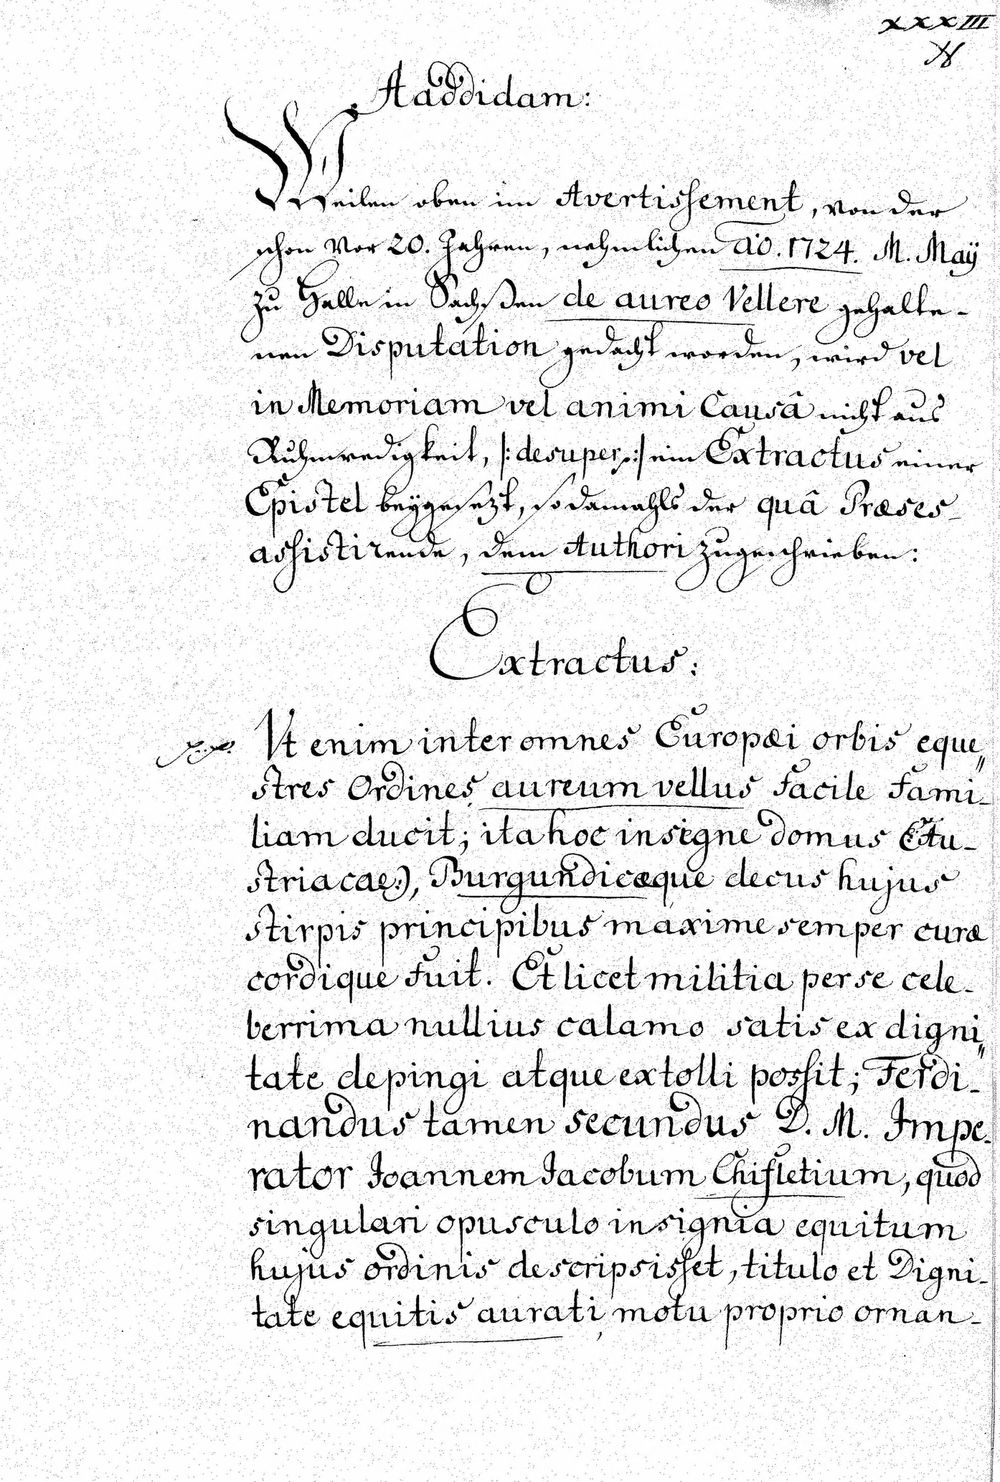 XXXIII
Aaddidam:
Weilen oben im Avertissement, von der
schon vor 20. Jahren, nehmlichen aõ. 1724. M. Maÿ
zu Halle in Sachßen de aureo Vellere gehalte-
nen Disputation gedacht worden, wird vel
in Memoriam vel animi Causâ nicht aus
Ruhmredigkeit, |: desuper :| ein Extractus einer
Epistel beÿgesezt, so damahls der quâ Præses
assistirende, dem Authori zugeschrieben:
Extractus:
Ut enim inter omnes Europæi orbis eque„
stres Ordines aureum vellus facile fami-
liam ducit; ita hoc insigne domus Au-
striacae), Burgundicæque decus hujus
stirpis principibus maxime semper curæ
cordique fuit. Et licet militia per se cele-
berrima nullius calamo satis ex digni„
tate depingi atque extolli possit; Ferdi-
nandus tamen secundus D. M. Impe-
rator Joannem Jacobum Chifletium, quod
singulari opusculo insignia equitum
hujus ordinis descripsisset, titulo et Digni-
tate equitis aurati, motu proprio ornan-